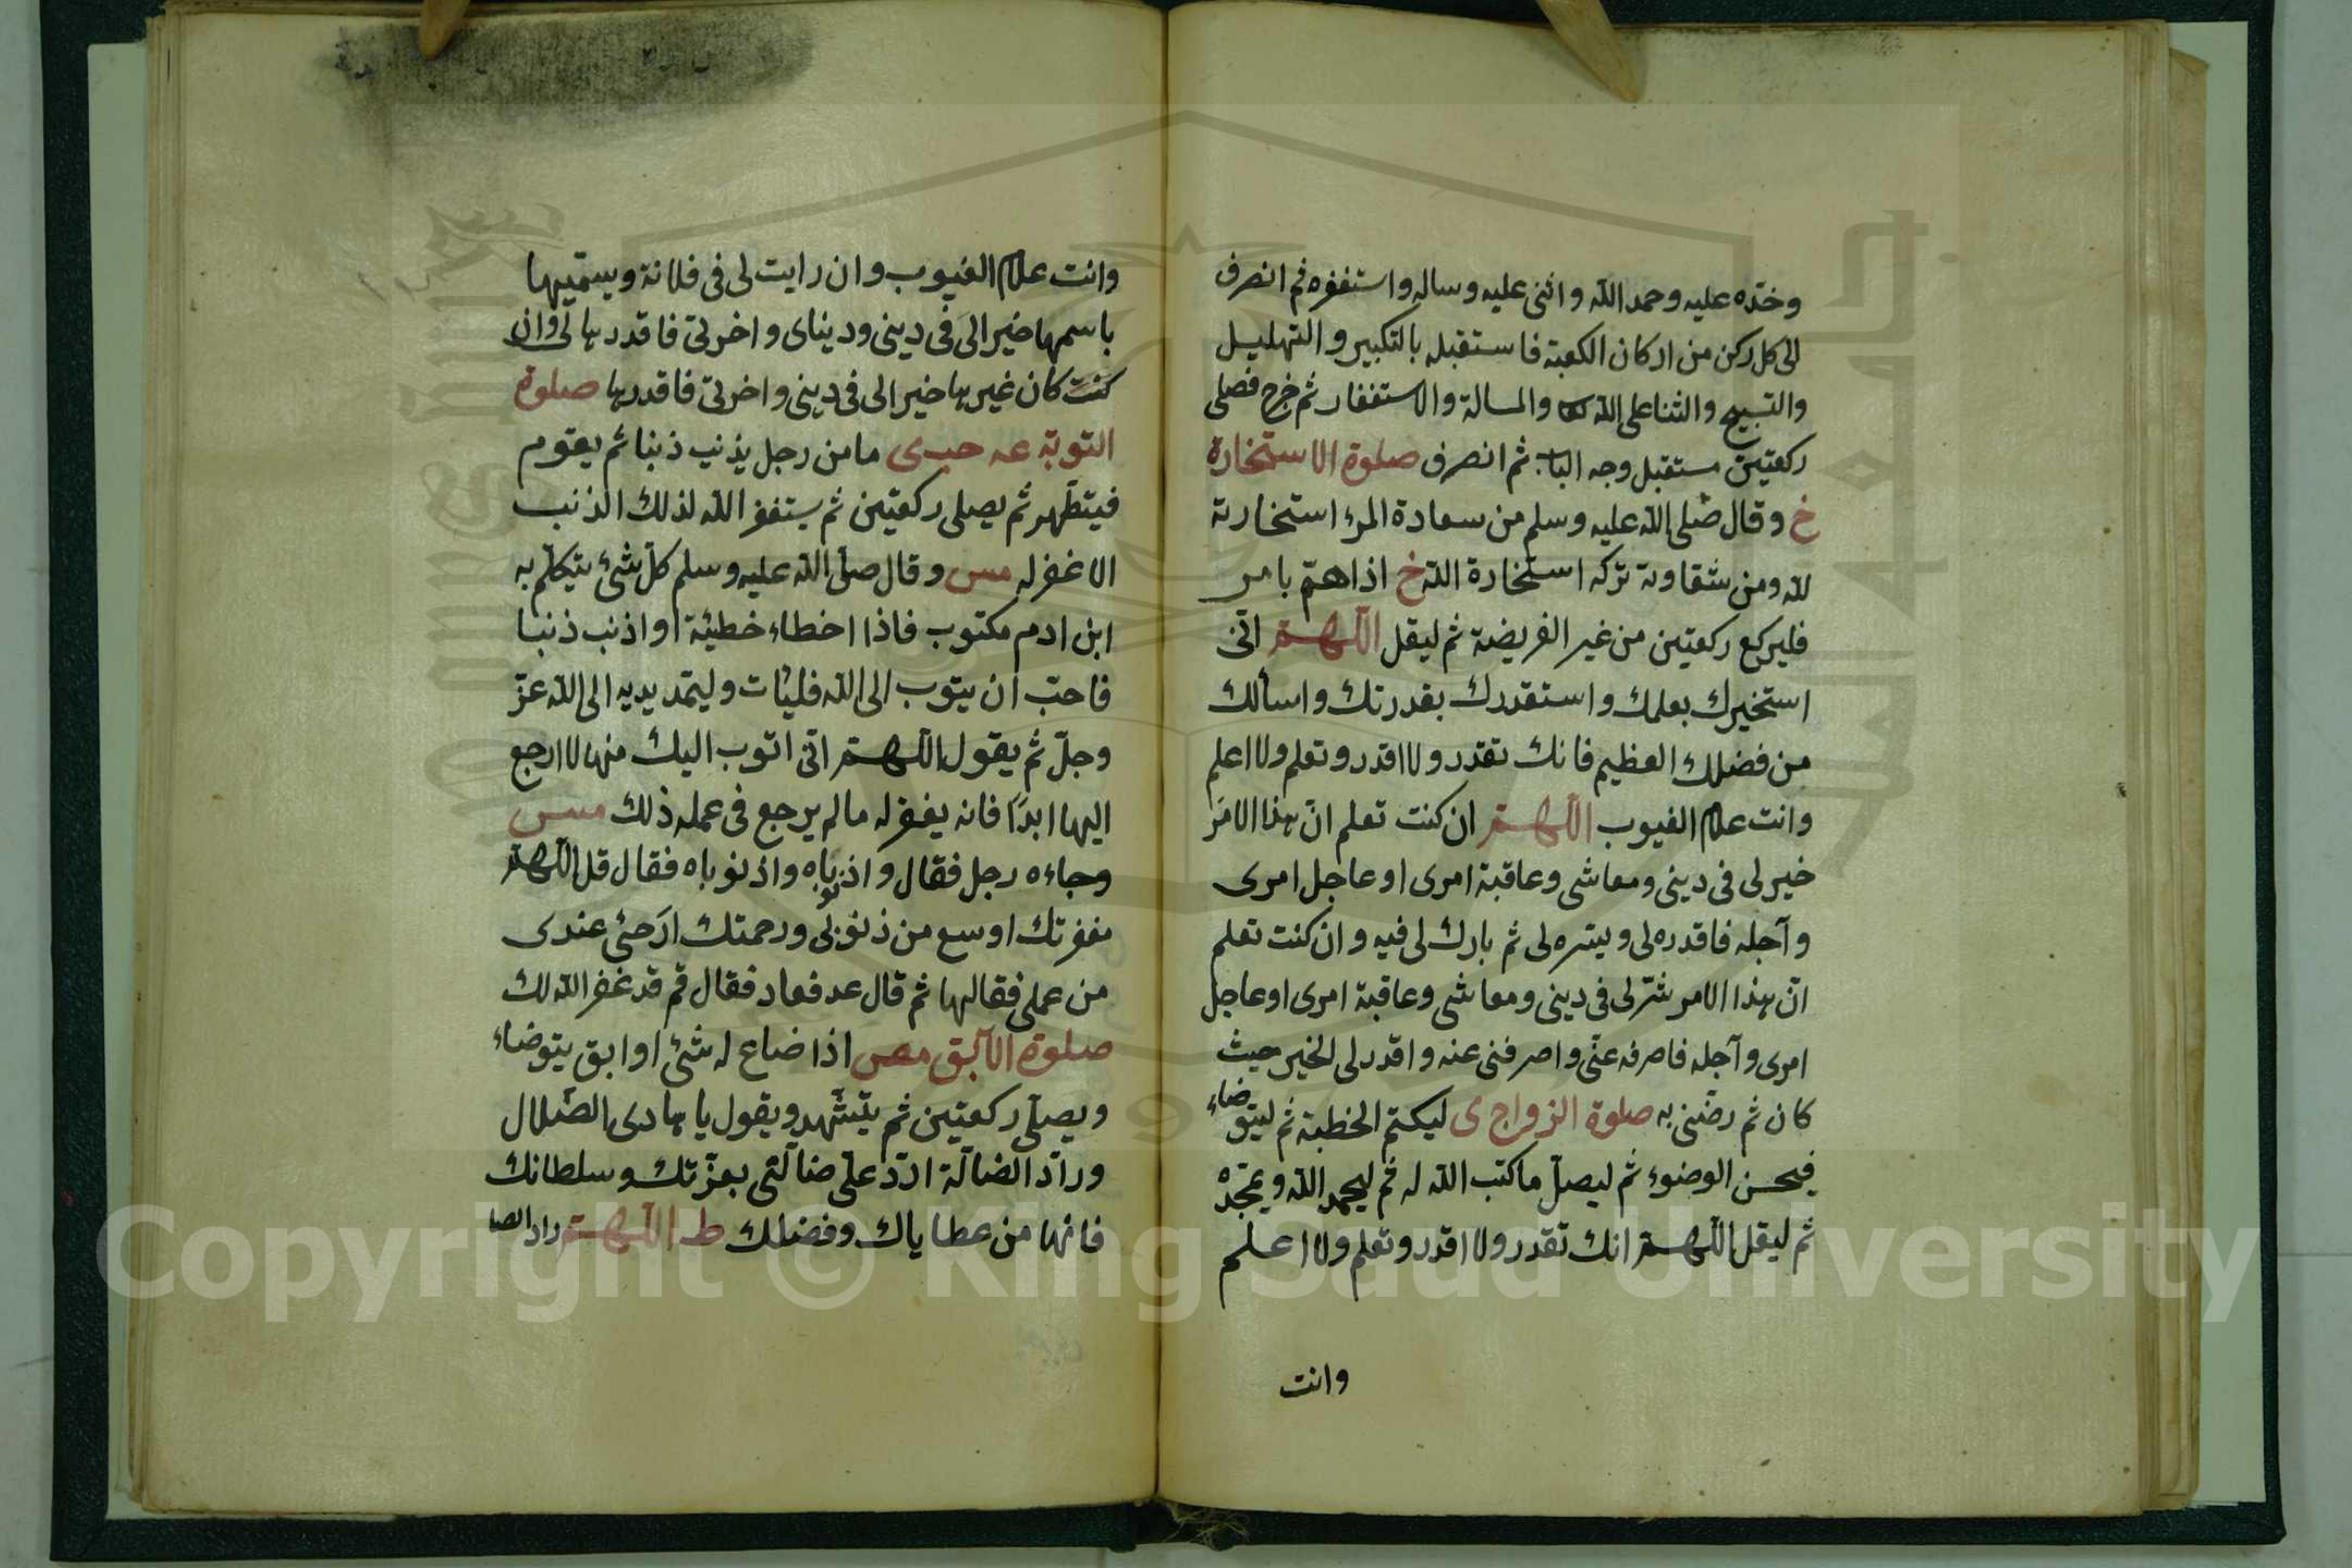 وخده عليه وحمد الله واثنى عليه وساله واستغفره ثم انصرف
الى كل ركن من اركان الكعبة فاستقبله بالتكبير والتهليل
والتسبيح والثنا على الله والمسالة والاستغفار ثم خرج فصلى
ركعتين مستقبل وجه ثم انصرف صلوة الاستخارة
خ وقال صلى الله عليه وسلم من سعادة المرء استخارته
لله ومن شقاوته تركه استخارة الله خ اذا هم بامر
فليركع ركعتين من غير الفريضة ثم ليقل اللهم انى
استخيرك بعلمك واستقدرك بقدرتك واسألك
من فضلك العظيم فانك تقدر ولا اقدر وتعلم ولا اعلم
وانت علام الغيوب اللهم ان كنت تعلم ان هذا الامر
خير لى فى دينى ومعاشى وعاقبة امرى او عاجل امرى
وآجله فاقدره لى ويسره لى ثم بارك لى فيه وان كنت تعلم
ان هذا الامر شر لى فى دينى ومعاشى وعاقبة امرى او عاجل
امرى وآجله فاصرفه عنى واصرفنى عنه واقدر لى الخير حيث
كان ثم رضنى به صلوة الزواج ى ليكتم الخطبة ثم ليتوضاء
فيحسن الوضوء ثم ليصل ما كتب الله له ثم ليحمد الله ويمجده
ثم ليقل اللهم انك تقدر ولا اقدر وتعلم ولا اعلم
وانت
وانت علام الغيوب وان رايت لى فى فلانة ويسميها
باسمها خيرا لى فى دينى ودنياى واخرتى فاقدرها لى وان
كنت كان غيرها خيرا لى فى دينى واخرتى فاقدرها صلوة
التوبة عه حب ى ما من رجل يذنب ذنبا ثم يقوم
فيتطهر ثم يصلى ركعتين ثم يستغفر الله لذلك الذنب
الا غفر له مس وقال صلى الله عليه وسلم كل شئ يتكلم به
ابن ادم مكتوب فاذا اخطاء خطيئة او اذنب ذنبا
فاحب ان يتوب الى الله فليأت وليمد يديه الى الله عز
وجل ثم يقول اللهم انى اتوب اليك منها لا ارجع
اليها ابدا فانه يغفر له ما لم يرجع فى عمله ذلك مس
وجاءه رجل فقال واذنوباه واذنوباه فقال قل اللهم
مغفرتك اوسع من ذنوبى ورحمتك ارجئ عندى
من عملى فقالها ثم قال عد فعاد فقال قم قد غفر الله لك
صلوة الآبق مص اذا ضاع له شئ او ابق يتوضاء
ويصلى ركعتين ثم يتشهد ويقول يا هادى الضلال
وراد الضالة اردد على ضالتى بعزتك وسلطانك
فانها من عطاياك وفضلك ط اللهم راد الضا
Copyright © King Saud University